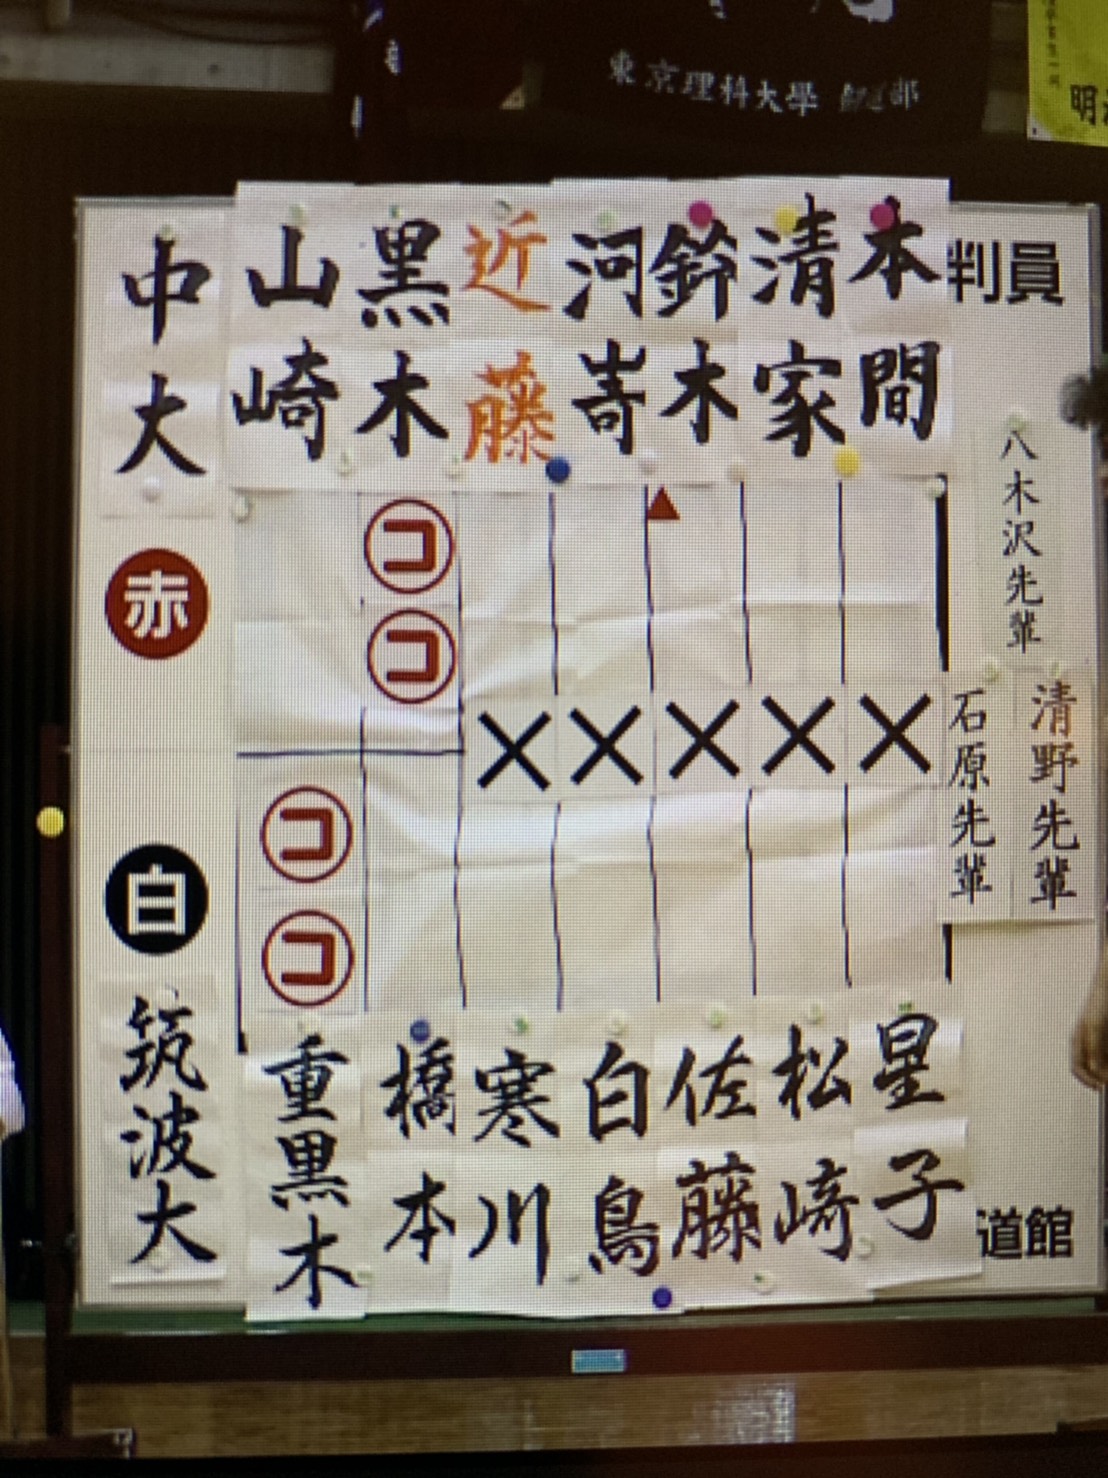 東京理科大學
明
判員
八木沢先輩
清野先輩
石原先輩
道館
本間
清家
鈴木
河嵜
近藤
黒木
山崎
中大
赤
コ
コ
×
×
×
×
×
コ
コ
白
星子
松崎
佐藤
白鳥
寒川
橋本
重黒木
筑波大